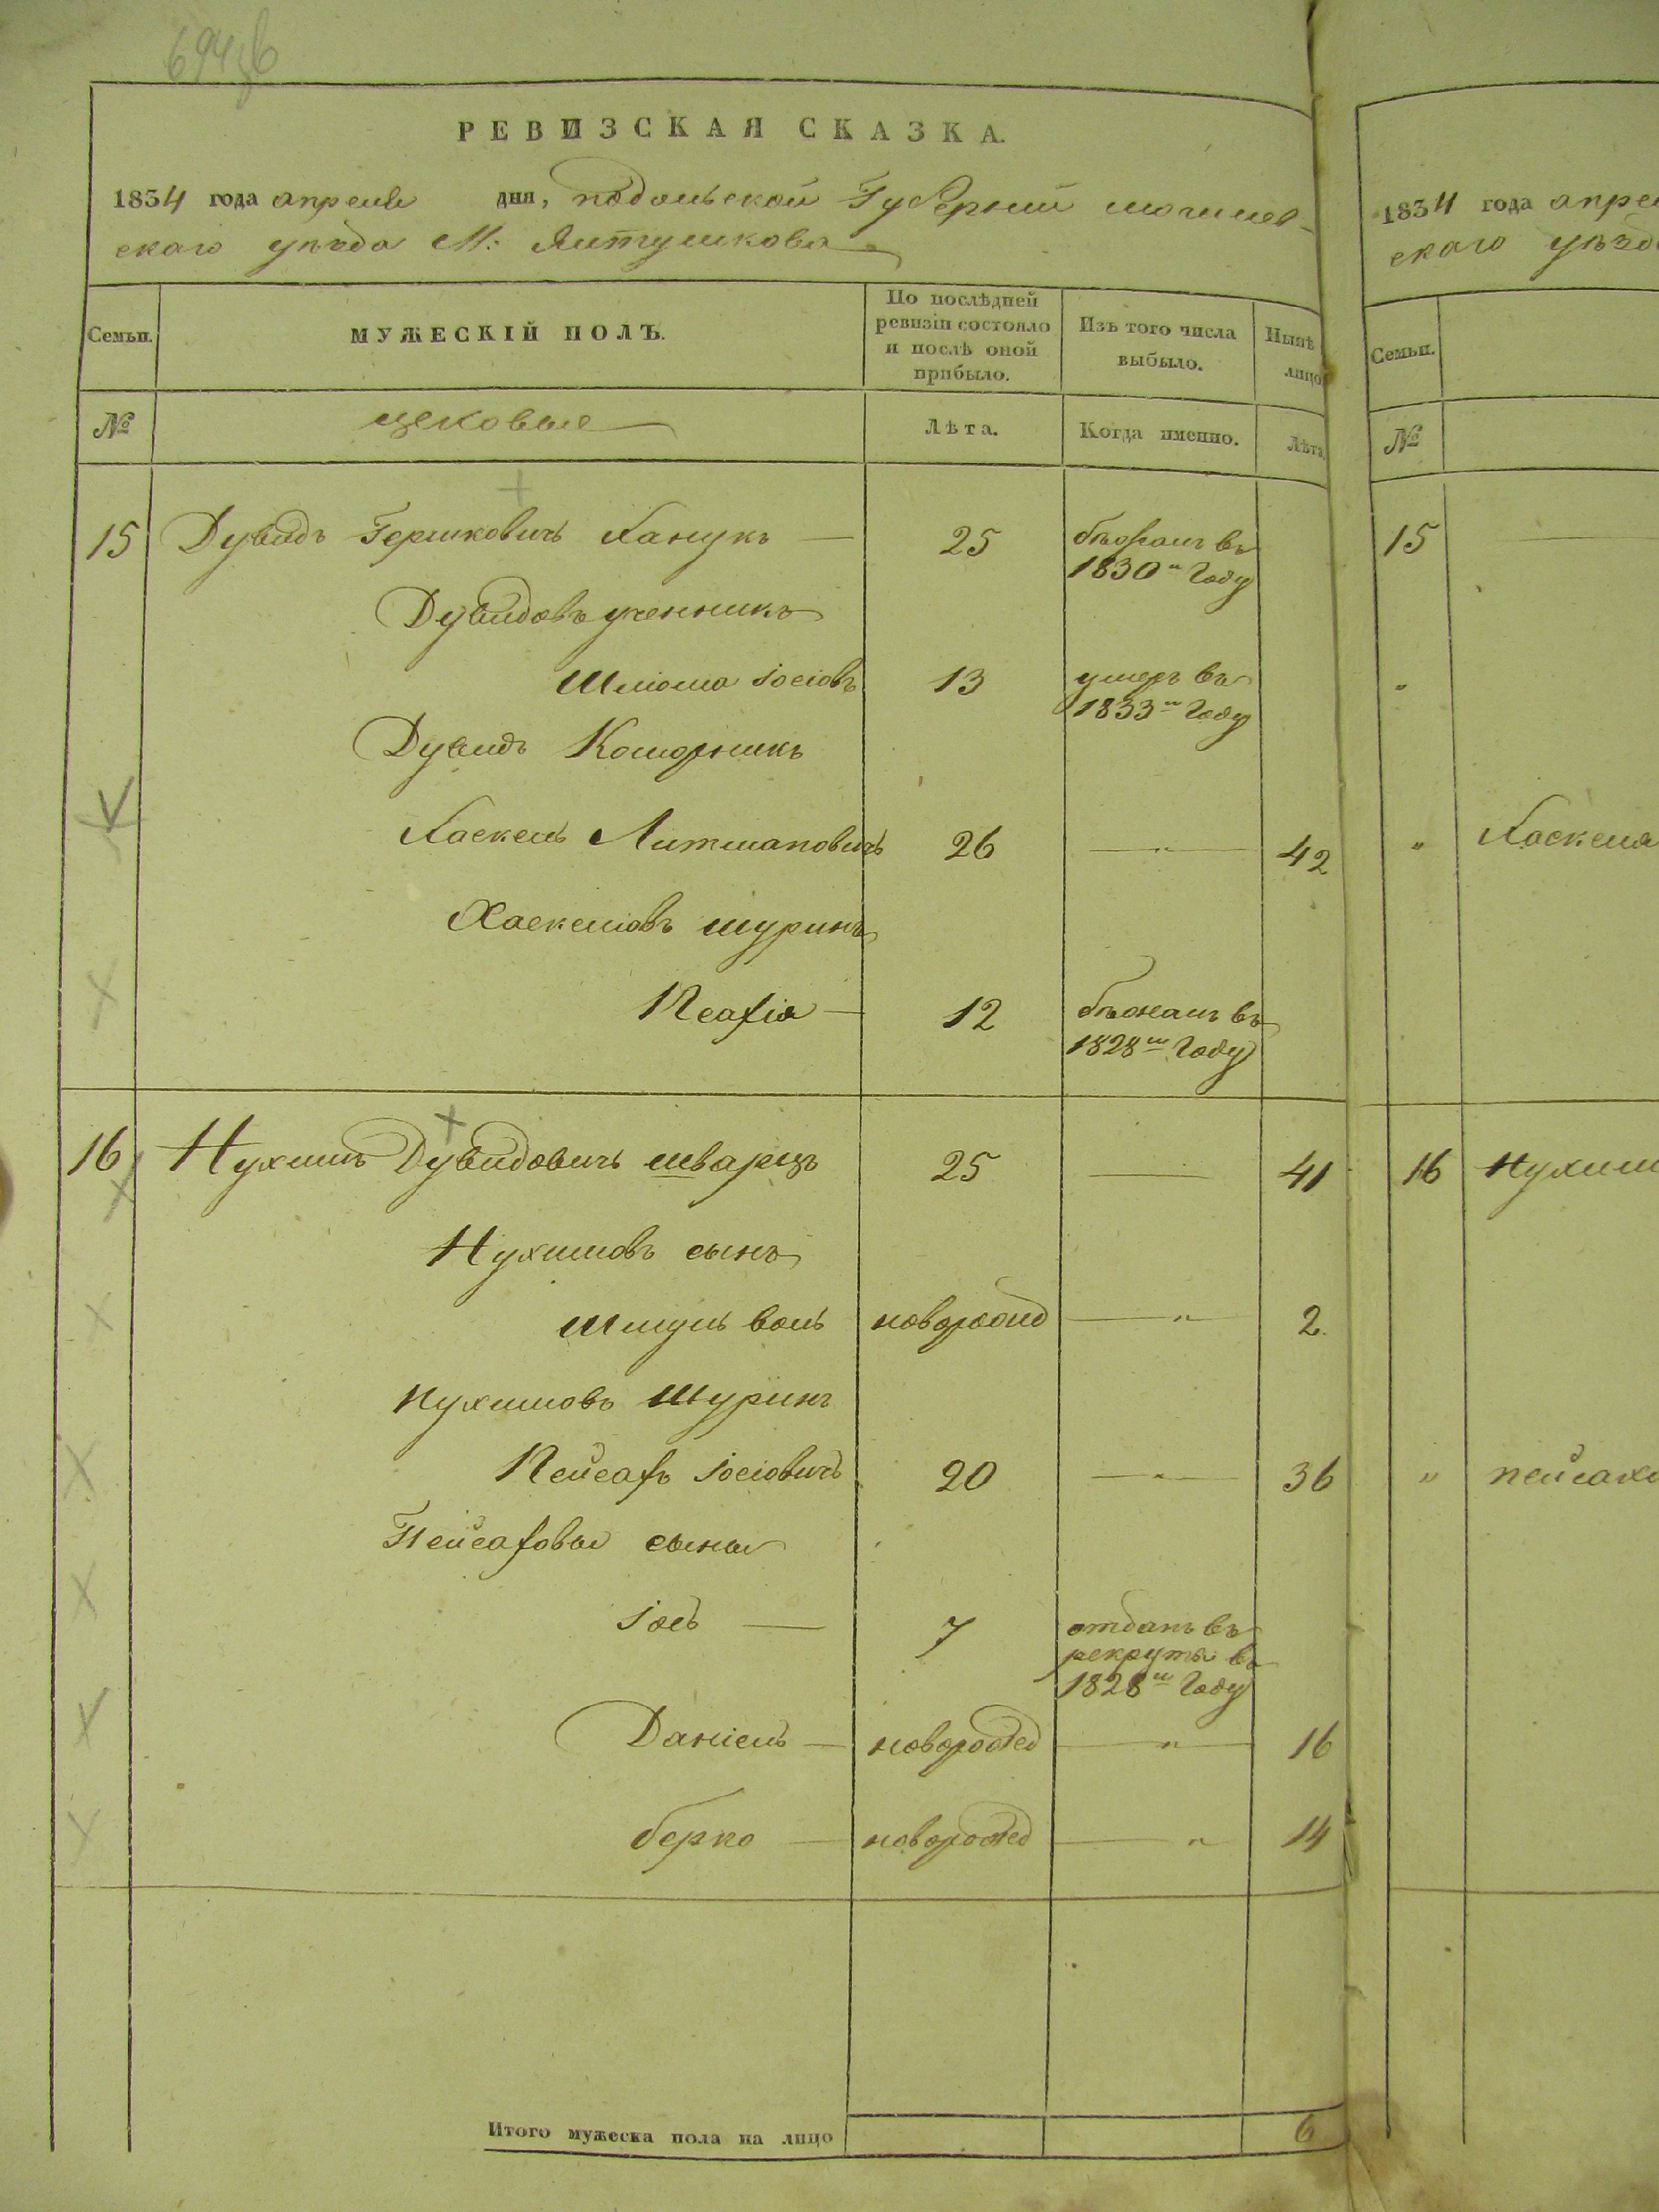 694
РЕВИЗСКАЯ СКАЗКА.
1834 года апреля дня, подольской Губерний могилев-
скаго уѣзда М: Ялтушкова
Семьи.
МУЖЕСКІЙ ПОЛЪ.
По послѣдней
ревизіи состояло
и послѣ оной
прибыло.
Изъ того числа
выбыло.
Нынѣ
лицо
№
цеховые
Лѣта.
Когда именно.
Лѣта
15 Дувидъ Гершковичъ Ханукъ — 25 бѣжалъ въ
1830м Году
Дувидовъ ученникъ
Шлiома Іосiовъ 13 умеръ въ
1833м Году
Дувидъ Коморникъ
Хаскель Литмановичъ 26 — " — 42
Хаскелiовъ шуринъ
Псахiя — 12 бѣжалъ въ
1828м Году
16 Нухимъ Дувидовичъ шварцъ 25 — 41
Нухимовъ сынъ
Шмуль волъ новорожд — " — 2.
Нухимовъ Шуринъ
Пейсахъ Іосiовичъ 20 — " — 36
Пейсаховы сыны
Іосъ — 7 отданъ въ
рекруты въ
1828м Году
Данiель — новорожед — " — 16
берко — новорожед — " 14
Итого мужеска пола на лицо 6
1834 года апре
скаго уѣзд
Семьи.
№
15 —
"
" Хаскеля
16 Нухим
" пейсахо